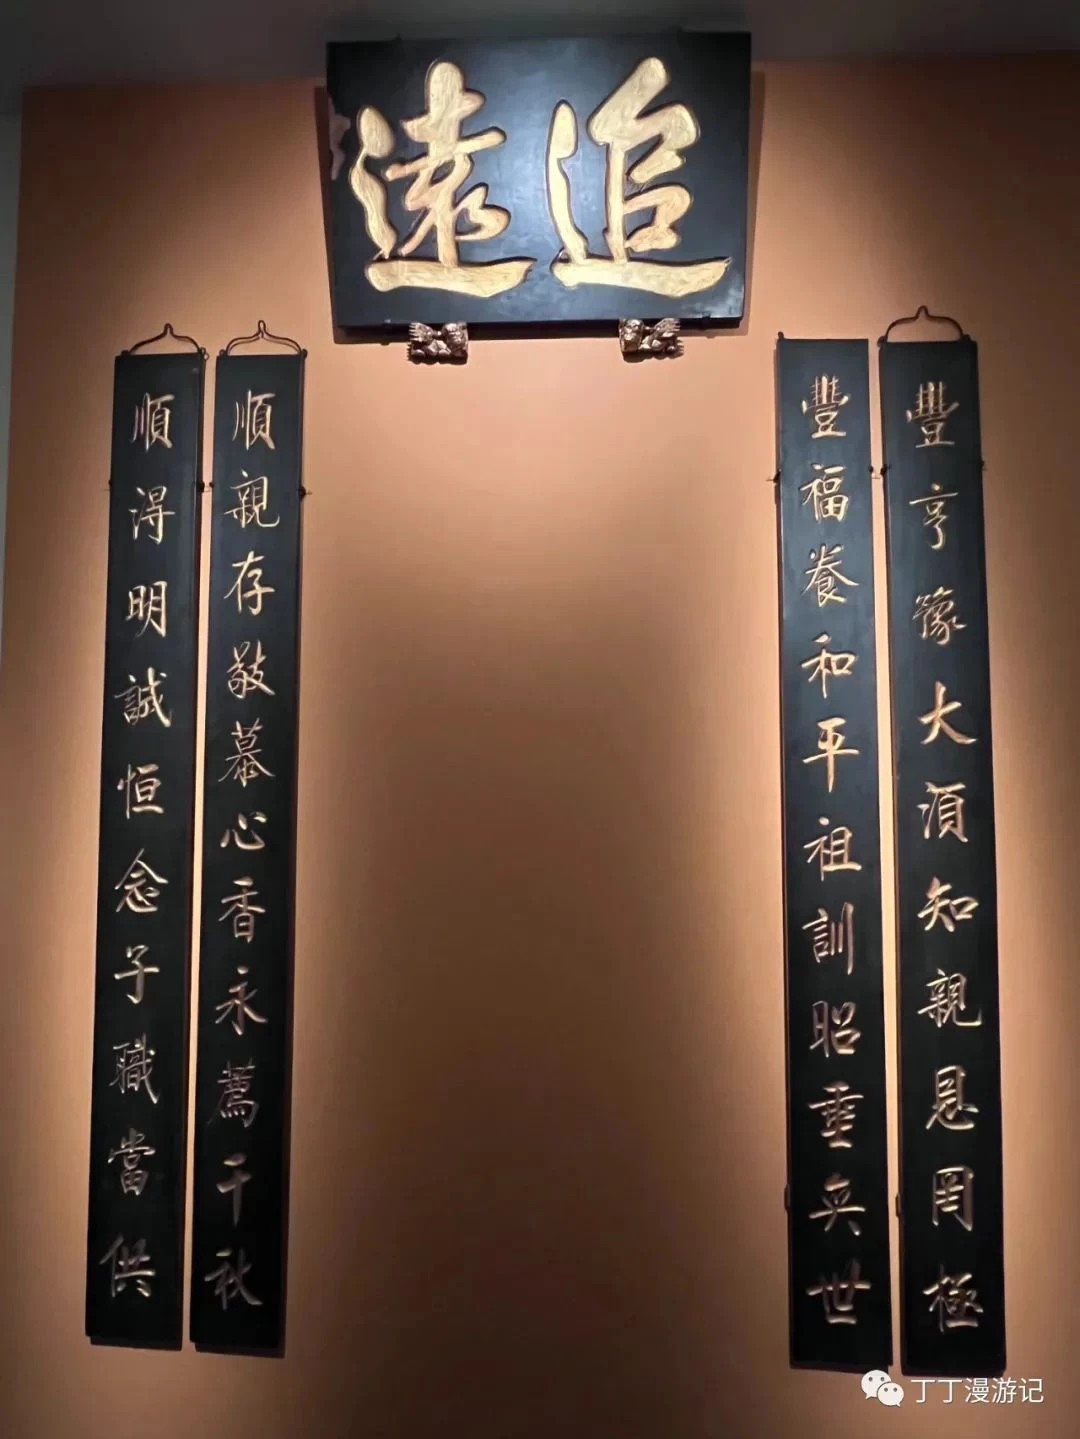 追遠
豐亨豫大須知親恩罔極
豐福養和平祖訓昭垂奕世
順親存敬慕心香永薦千秋
順得明誠恒念子職當供
丁丁漫游记